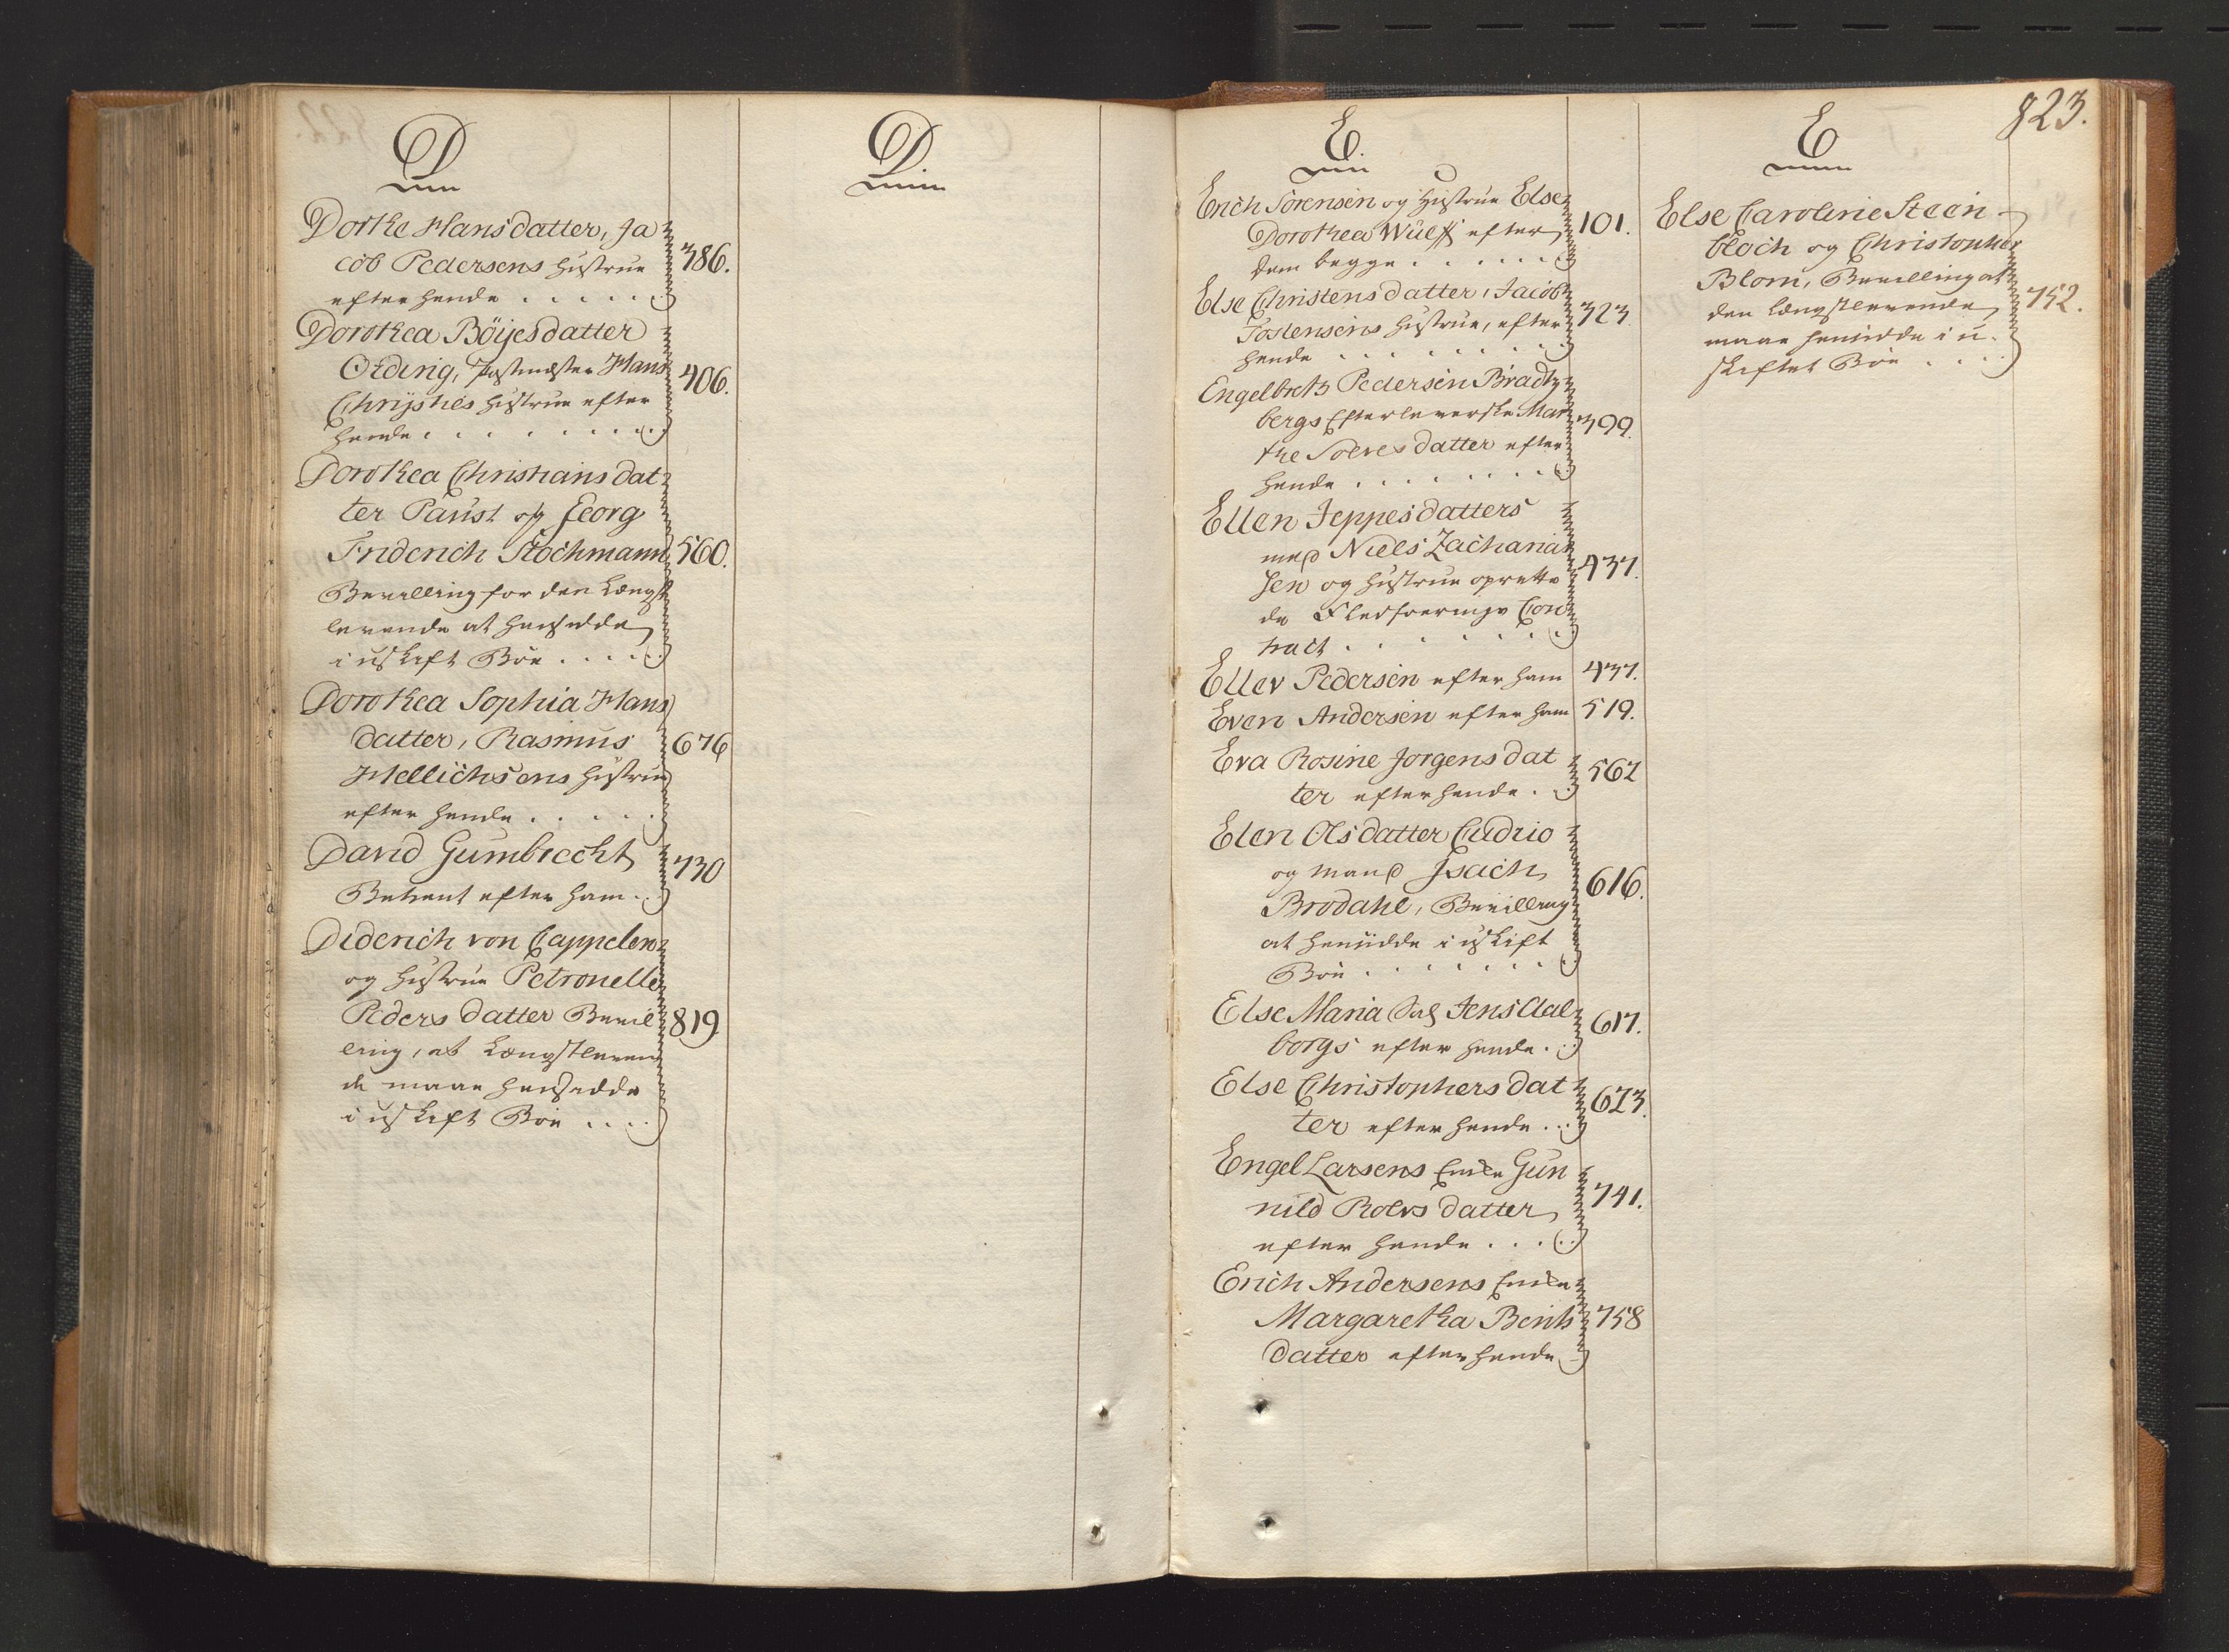 D
Dorthe Hansdatter, Ja
cob Pedersens Hustrue
efter hende . . . . . 386.
Dorothea Böÿesdatter
Otding, Postmester Hans
Chrÿsties Hustrue efter
hende . . . . . . . . 406.
Dorothea Christiansdat
ter Paust og Georg
Friderich Stochmann 560.
Bevilling for den Længst
levende at hensidde
i uskift Boe . . . .
Dorothea Sophia Hans
datter, Rasmus 676
Mellichsens Hustrue
efter hende . . . . .
David Gumbrecht 730
Betient efter ham . .
Diderich von Cappelen
og Hustrue Petronelle
Peders datter Bevil 819
ling, at Længstleven
de maae hensidde
i uskift Boe . . . .
D
E.
Erich Sörensen og Hustrue Else
Dorothea Wulff efter 101.
dem begge . . . . . .
Else Christensdatter, Jacob
Tostensens Hustrue, efter 323
hende . . . . . . . .
Engelbret Pedersen Bradtz
bergs Efterleverske Mar
the Solvesdatter efter 399.
hende . . . . . . . .
Ellen Jeppesdatters
med Niels Zacharia
sen og Hustrue oprette 437.
de Fledförings Con
tract . . . . . . .
Ellev Pedersen efter ham 437.
Even Andersen efter ham 519.
Eva Rosine Jorgens dat
ter efter hende . . 562
Elen Olsdatter Cudrio
og mand Isach 616.
Brodahl, Bevilling
at hensidde i uskift
Boe . . . . . . .
Else Maria Sal Jens Aal
borgs efter hende . . 617.
Else Christophers dat
ter efter hende . . 623.
Engel Larsens Enke Gun
nild Rolvs datter 741.
efter hende . . . .
Erich Andersens Enke
Margaretha Bents 758
datter efter hende
823.
E
Else Caroline Steen
bloch og Christopher
Blom, Bevilling at
den længstlevende 752.
maae hensidde i u-
skiftet Boe . . . .